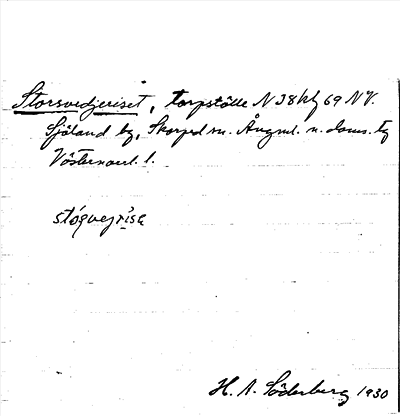 Storsvedjeriset, torpställe N 38 kl 69 NV.
Sjöland by, Skorped sn. Ångml. n. doms. tg
Västernorrl. l.
stógvejrisə
H. A. Söderberg 1930